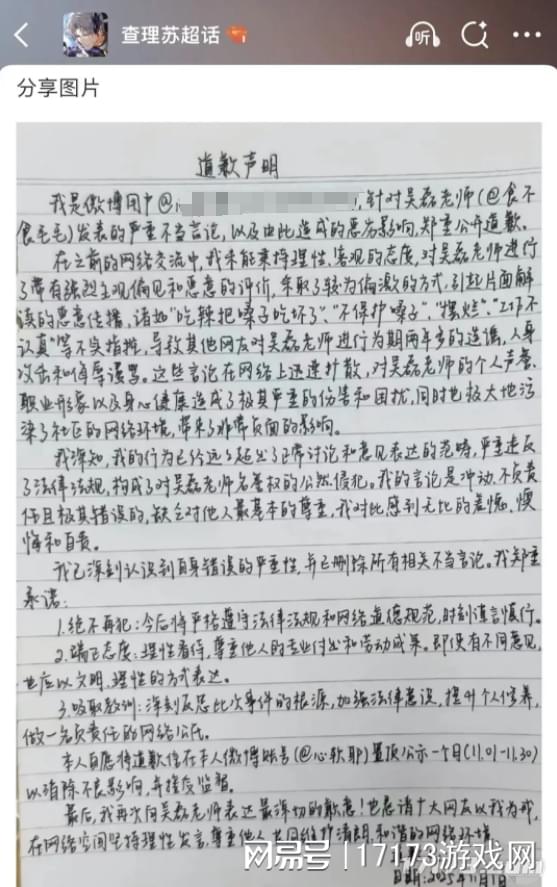 查理苏超话
听
分享图片
道歉声明
我是微博用户@i，针对吴磊老师(@食不
食毛毛)发表的严重不当言论，以及由此造成的恶劣影响，郑重公开道歉。
在之前的网络交流中，我未能秉持理性、客观的态度，对吴磊老师进行
了带有强烈主观偏见和恶意的评价，采取了较为偏激的方式，引起片面解
读的恶意传播，诸如"吃辣把嗓子吃坏了"、"不保护嗓子"、"摆烂"、"工作不
认真"等不实指控，导致其他网友对吴磊老师进行为期两年多的造谣，人身
攻击和侮辱谩骂。这些言论在网络上迅速扩散，对吴磊老师的个人声誉、
职业形象以及身心健康造成了极其严重的伤害和困扰，同时也极大地污
染了社区的网络环境，带来了非常负面的影响。
我深知，我的行为已经远远超出了正常讨论和意见表达的范畴，严重违反
了法律法规，构成了对吴磊老师名誉权的公然侵犯。我的言论是冲动、不负责
任且极其错误的，缺乏对他人最基本的尊重，我对此感到无比的羞愧、懊
悔和自责。
我已深刻认识到自身错误的严重性，并已删除所有相关不当言论。我郑重
承诺：
1.绝不再犯：今后将严格遵守法律法规和网络道德规范，时刻谨言慎行。
2.端正态度：理性看待，尊重他人的专业付出和劳动成果。即便有不同意见，
也应以文明、理性的方式表达。
3.吸取教训：深刻反思此次事件的根源，加强法律意识，提升个人修养，
做一名负责任的网络公民。
本人自愿将道歉信在本人微博账号(@心软耶)置顶公示一个月(11.01-11.30)
以消除不良影响，并接受监督。
最后，我再次向吴磊老师表达最深切的歉意！也恳请广大网友以我为戒，
在网络空间坚持理性发言，尊重他人，共同维护清朗、和谐的网络环境。
日期：2025年11月1日
网易号 | 17173游戏网